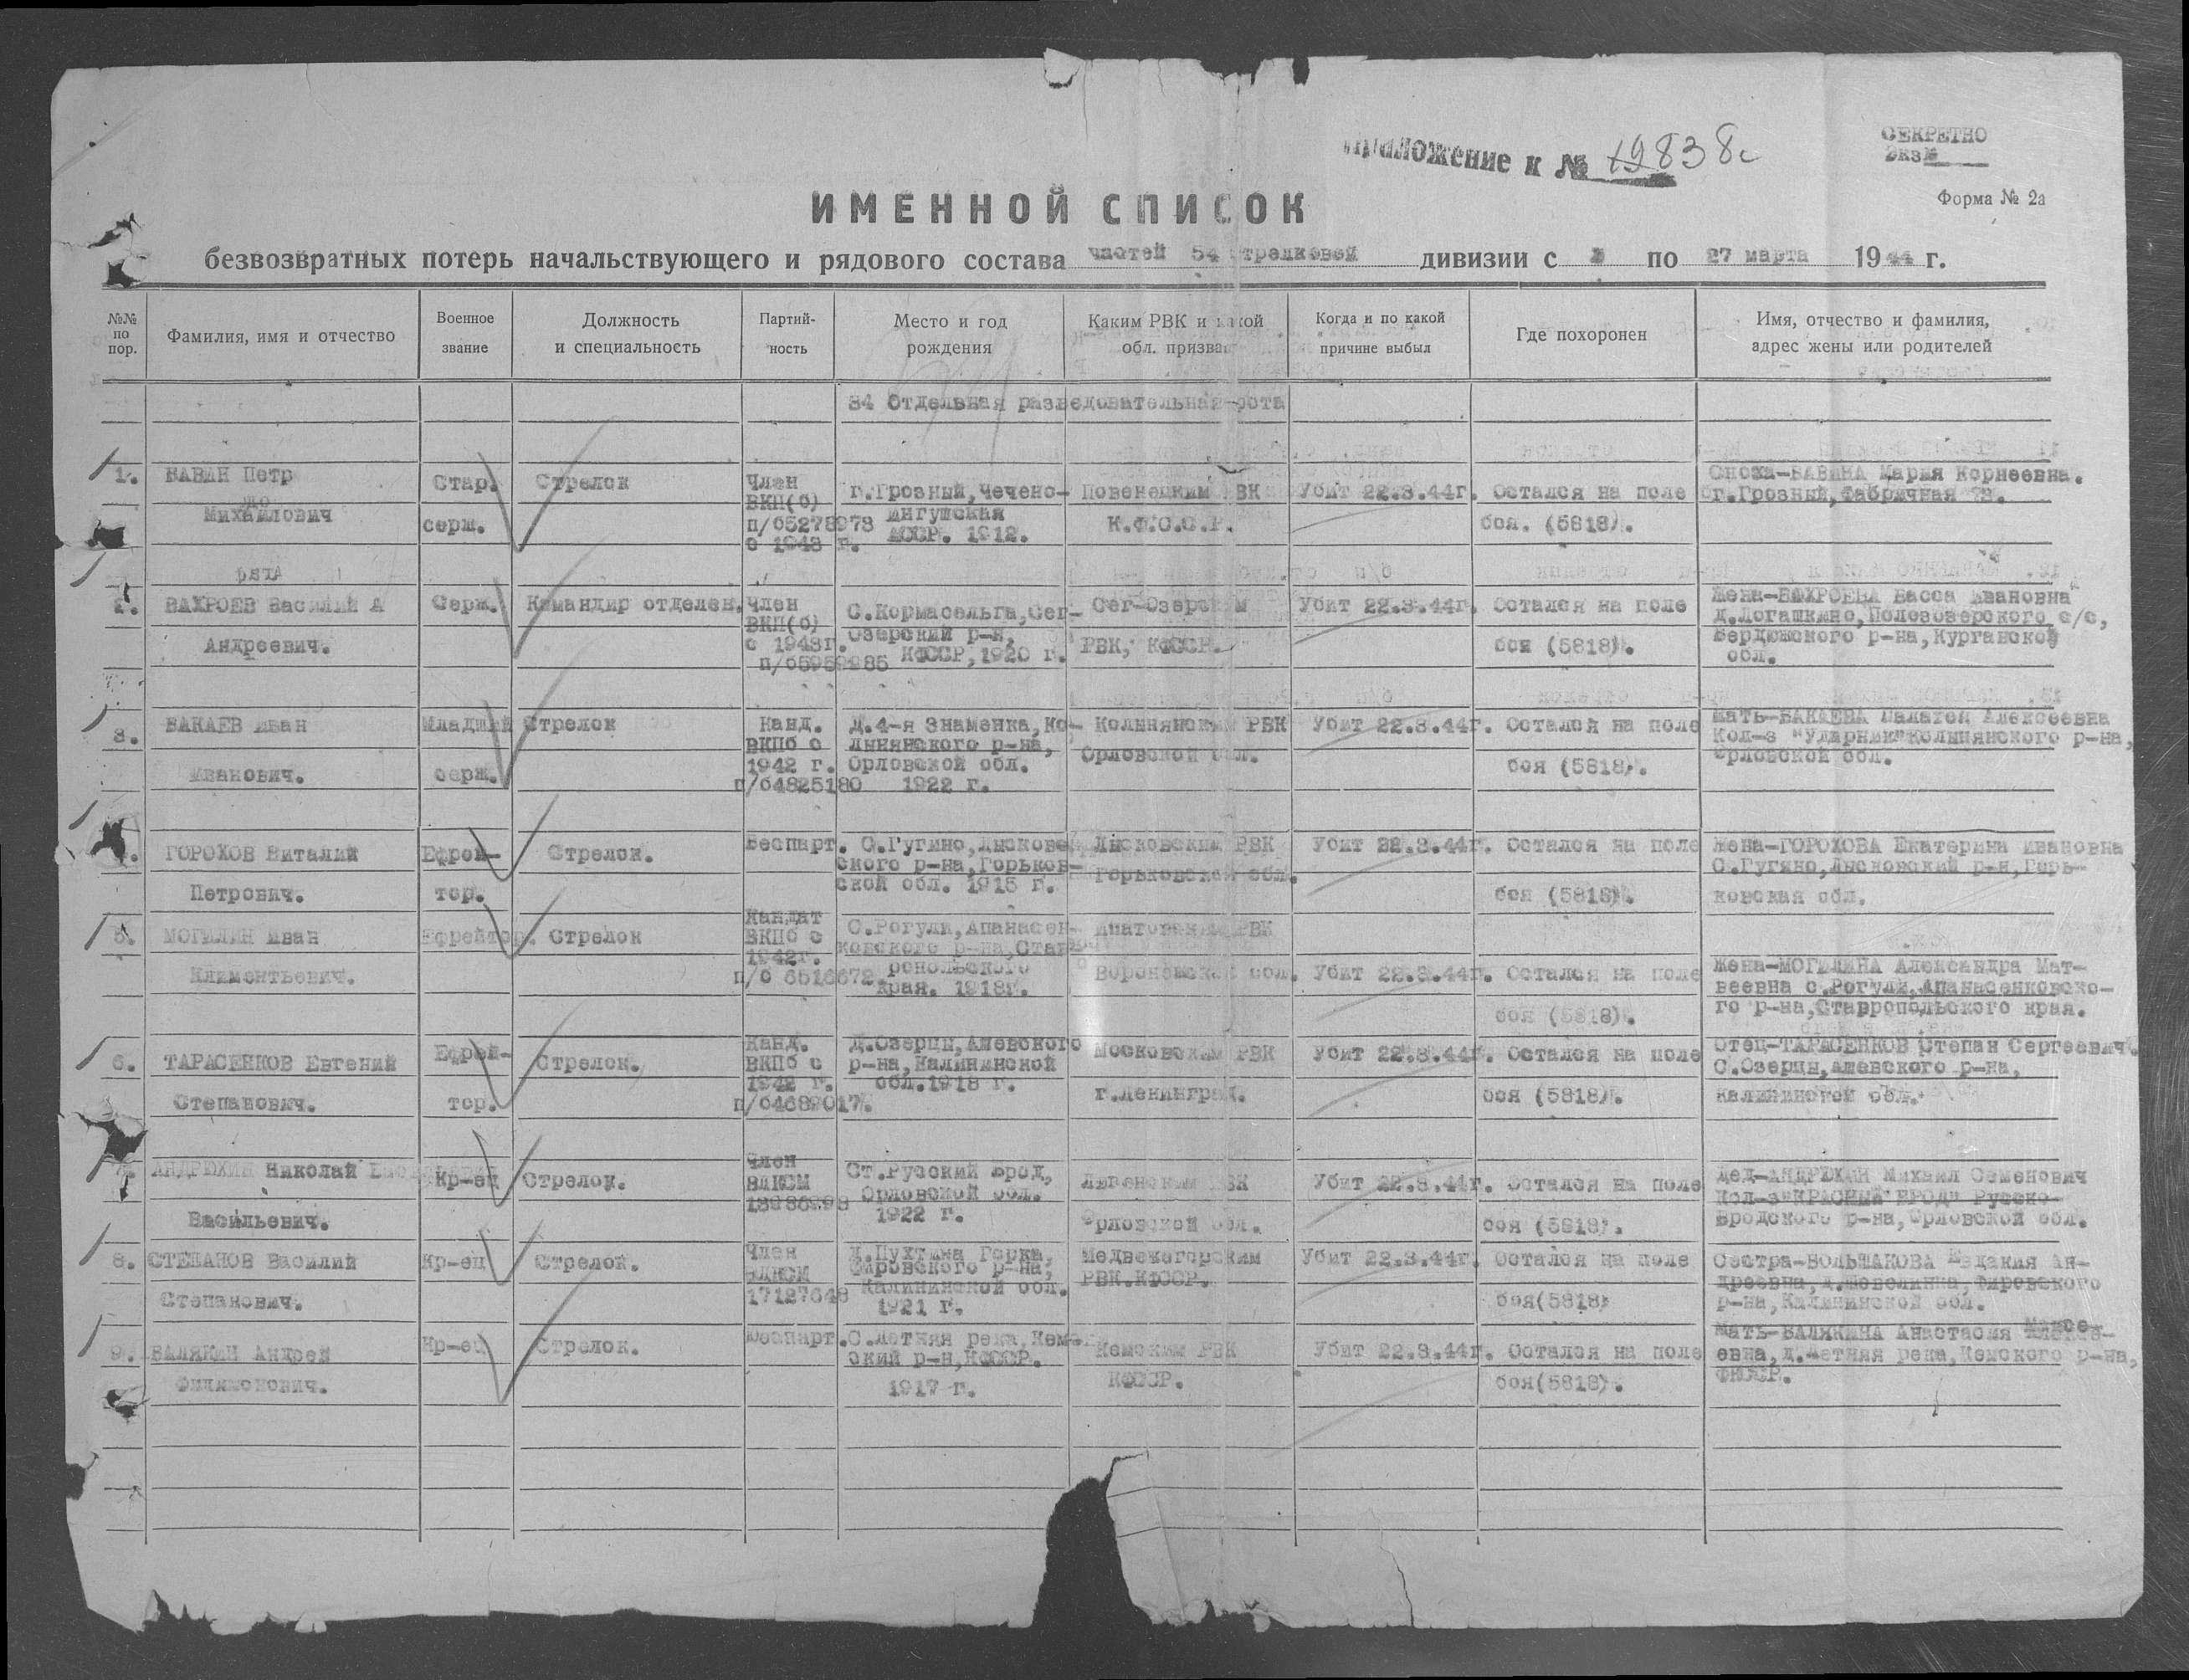 Приложение к № 19838с
СЕКРЕТНО
Экз№
Форма № 2а
ИМЕННОЙ СПИСОК
безвозвратных потерь начальствующего и рядового состава частей 54 стрелковой дивизии с по 27 марта 1944 г.
№№ по пор.
Фамилия, имя и отчество
Военное звание
Должность и специальность
Партий-ность
Место и год рождения
Каким РВК и какой обл. призван
Когда и по какой причине выбыл
Где похоронен
Имя, отчество и фамилия, адрес жены или родителей
84 Отдельная разведовательная рота
1. БАБИН Петр
Михайлович
Стар.
серж.
Стрелок
Член
ВКП(б)
п/б5278973
с 1943 г.
г.Грозный,Чечено-
Ингушская
АССР. 1912.
Повенецким РВК
К.Ф.С.С.Р.
Убит 22.3.44г.
Остался на поле
боя. (5818).
Сноха-БАБИНА Мария Корнеевна.
г.Грозный,Фабричная
2. ВАХРОЕВ Василий А
Андреевич.
Серж.
Командир отделен.
Член
ВКП(б)
с 1943г.
п/б5959985
С.Кормасельга,Сег-
Озерский р-н,
КФССР,1920 г.
Сег-Озерским
РВК, КФССР.
Убит 22.3.44г.
Остался на поле
боя (5818).
Жена-ВАХРОЕВА Васса Ивановна
д.Логашкино,Полозозерского с/с,
Бердюжского р-на,Курганской
обл.
3. БАКАЕВ Иван
Иванович.
Младший
серж.
Стрелок
Канд.
ВКПб с
1942 г.
п/б4825180
Д.4-я Знаменка,Ко-
лпнянского р-на,
Орловской обл.
1922 г.
Колпнянским РВК
Орловской обл.
Убит 22.3.44г.
Остался на поле
боя (5818).
Мать-БАКАЕВА Алексеевна
Кол-з "Ударник"Колпнянского р-на,
Орловской обл.
4. ГОРОХОВ Виталий
Петрович.
Ефрей-
тор.
Стрелок.
Беспарт.
С.Гугино,Лысков-
ского р-на,Горьков-
ской обл. 1915 г.
Лысковским РВК
Горьковской обл.
Убит 22.3.44г.
Остался на поле
боя (5818).
Жена-ГОРОХОВА Екатерина Ивановна
С.Гугино,Лысковский р-н,Горь-
ковская обл.
5. МОГИЛИН Иван
Климентьевич.
Ефрейтор.
Стрелок
Кандат
ВКПб с
1942г.
п/б 6516672
С.Рогули,Апанасен-
ковского р-на,Став-
ропольского
края. 1918г.
Ипатовским РВК
Воронежской обл.
Убит 22.3.44г.
Остался на поле
боя (5818).
Жена-МОГИЛИНА Александра Мат-
веевна с.Рогули,Апанасенковско-
го р-на,Ставропольского края.
6. ТАРАСЕНКОВ Евгений
Степанович.
Ефрей-
тор.
Стрелок.
Канд.
ВКПб с
1942 г.
п/б4689017.
Д.Озерцы,Ашевского
р-на,Калининской
обл.1918 г.
Московским РВК
г.Ленинград.
Убит 22.3.44г.
Остался на поле
боя (5818).
Отец-ТАРАСЕНКОВ Степан Сергеевич.
С.Озерцы,Ашевского р-на,
Калининской обл.
7. АНДРЮХИН Николай
Васильевич.
Кр-ец
Стрелок.
Член
ВЛКСМ
18936998
Ст.Русский Брод,
Орловской обл.
1922 г.
Ливенским РВК
Орловской обл.
Убит 22.3.44г.
Остался на поле
боя (5818).
Дед-АНДРЮХИН Михаил Семенович
Кол-з"КРАСНЫЙ БРОД" Русско-
Бродского р-на,Орловской обл.
8. СТЕПАНОВ Василий
Степанович.
Кр-ец
Стрелок.
Член
ВЛКСМ
17127648
Д.Пухтина Горка,
Фировского р-на,
Калининской обл.
1921 г.
Медвежегорским
РВК.КФССР.
Убит 22.3.44г.
Остался на поле
боя(5818)
Сестра-БОЛЬШАКОВА Евдакия Ан-
дреевна,д.Шевелинка,Фировского
р-на,Калининской обл.
9. ВАЛЯКИН Андрей
Филимонович.
Кр-ец
Стрелок.
Беспарт.
С.Летняя река,Кем-
ский р-н,КФССР.
1917 г.
Кемским РВК
КФССР.
Убит 22.3.44г.
Остался на поле
боя(5818).
Мать-ВАЛЯКИНА Анастасия Моисе-
евна,д.Летняя река,Кемского р-на,